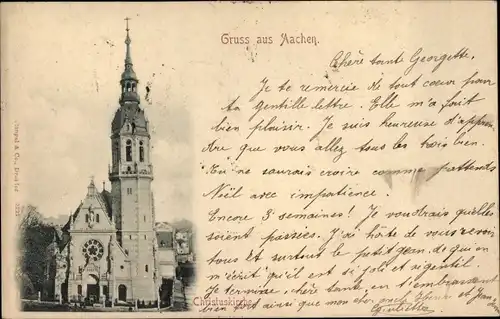 Gruss aus Aachen.
Chère tante Georgette.
Je te remercie de tout coeur pour
ta gentille lettre. Elle m'a fait
bien plaisir. Je suis heureuse d'appren
dre que vous allez tous les trois bien.
Tu ne saurais croire comme j'attends
Noël avec impatience.
Encore 3 semaines! Je voudrais qu'elles
soient passées. J'ai hâte de vous revoir
et surtout le petit Jean, de qui on
m'écrit qu'il est si joli et si gentil.
Je termine, chère tante, en t'embrassant
bien fort ainsi que mon cher oncle et Jean
Christuskirche.